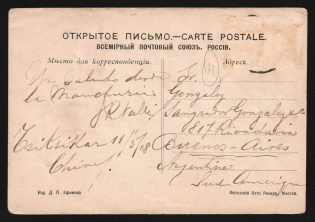 ОТКРЫТОЕ ПИСЬМО.—CARTE POSTALE.
ВСЕМІРНЫЙ ПОЧТОВЫЙ СОЮЗЪ. РОССІЯ.
Мѣсто для корреспонденціи.
Адресъ
Un saludo desde
la Manchuria
Tsitsikar 11/5/08
China
Sr.
Gonzalez
Sangrador Gonzalez
1817 Rivadavia
Buenos-Aires
Argentine
Sud America
Изд. Д. П. Ефимова.
Фототипія Отто Ренаръ, Москва.